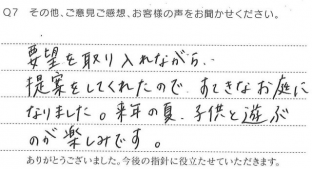 Q7 その他、ご意見ご感想、お客様の声をお聞かせください。
要望を取り入れながら、
提案をしてくれたので、すてきなお庭に
なりました。来年の夏、子供と遊ぶ
のが楽しみです。
ありがとうございました。今後の指針に役立たせていただきます。